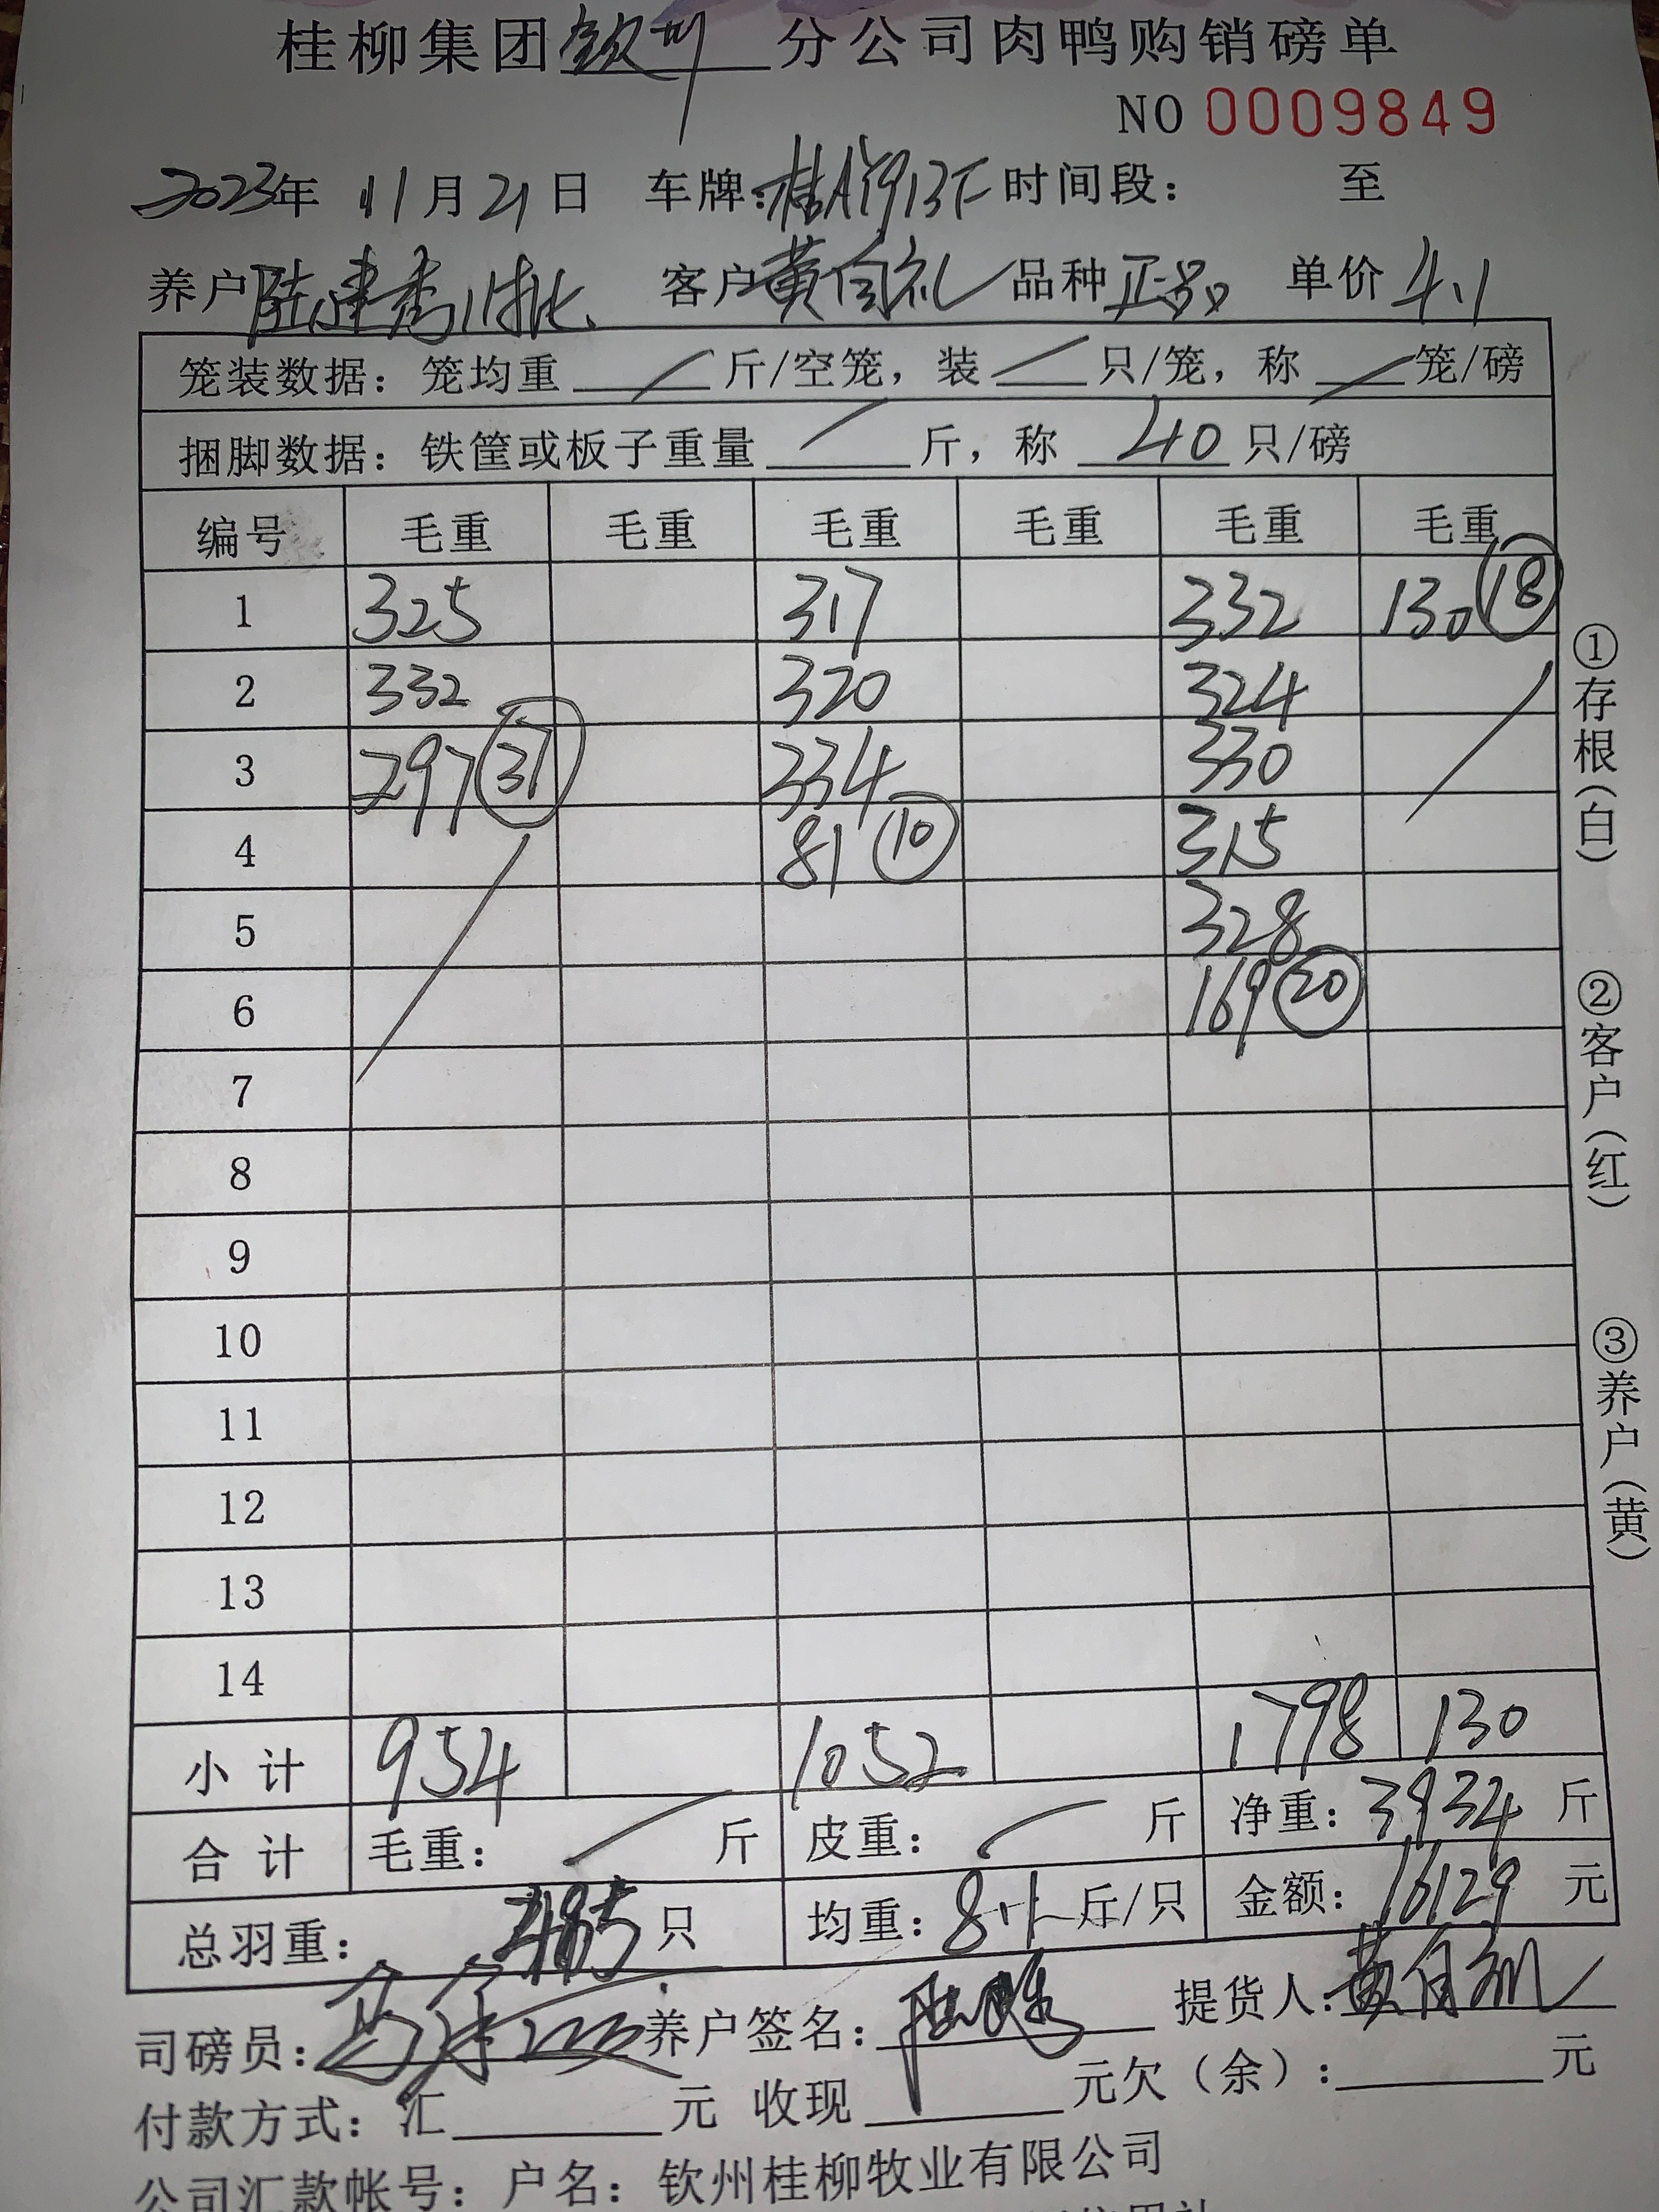 桂柳集团钦州分公司肉鸭购销磅单
NO 0009849
2023年 11月21日 车牌:桂A 913F 时间段: 至
养户陆建秀 批 客户黄自礼 品种正品 单价4.1
笼装数据:笼均重 / 斤/空笼,装 / 只/笼,称 / 笼/磅
捆脚数据:铁筐或板子重量 / 斤,称 40 只/磅
编号 毛重 毛重 毛重 毛重 毛重 毛重
1 325 317 332 130 ⑱
2 332 320 324
3 297 ㊲ 334 330
4 81 ⑩ 315
5 328
6 169 ⑳
7
8
9
10
11
12
13
14
小计 954 1052 1798 130
合计 毛重: / 斤 皮重: / 斤 净重:3934斤
总羽重:485只 均重:8.1斤/只 金额:16129元
司磅员: 养户签名: 提货人:黄自礼
付款方式:汇 元 收现 元欠(余): 元
公司汇款帐号:户名:钦州桂柳牧业有限公司
①存根(白)
②客户(红)
③养户(黄)